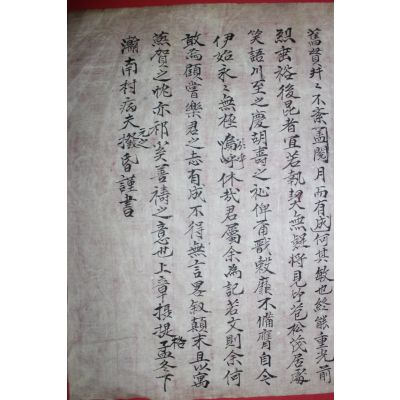 舊貫井〻不紊盖閱月而有成何其敏也終能重光前
烈垂裕後昆者宜若執契無疑將見竹苞松茂居處
笑語川至之慶胡壽之祉俾莆戩穀靡不備膺自今
伊始永〻無極嗚呼休哉君屬余為記若文則余何
敢焉顧嘗樂君之志有成不得無言畧敘顚末且以寓
燕賀之忱亦祁奚善禱之意也上章攝提格孟冬下
瀚南村病夫撥昏謹書